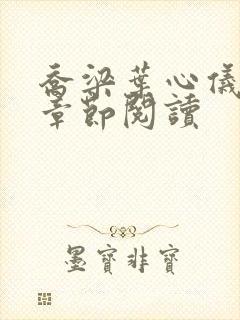 喬梁葉心儀
章節閱讀
墨寶非寶